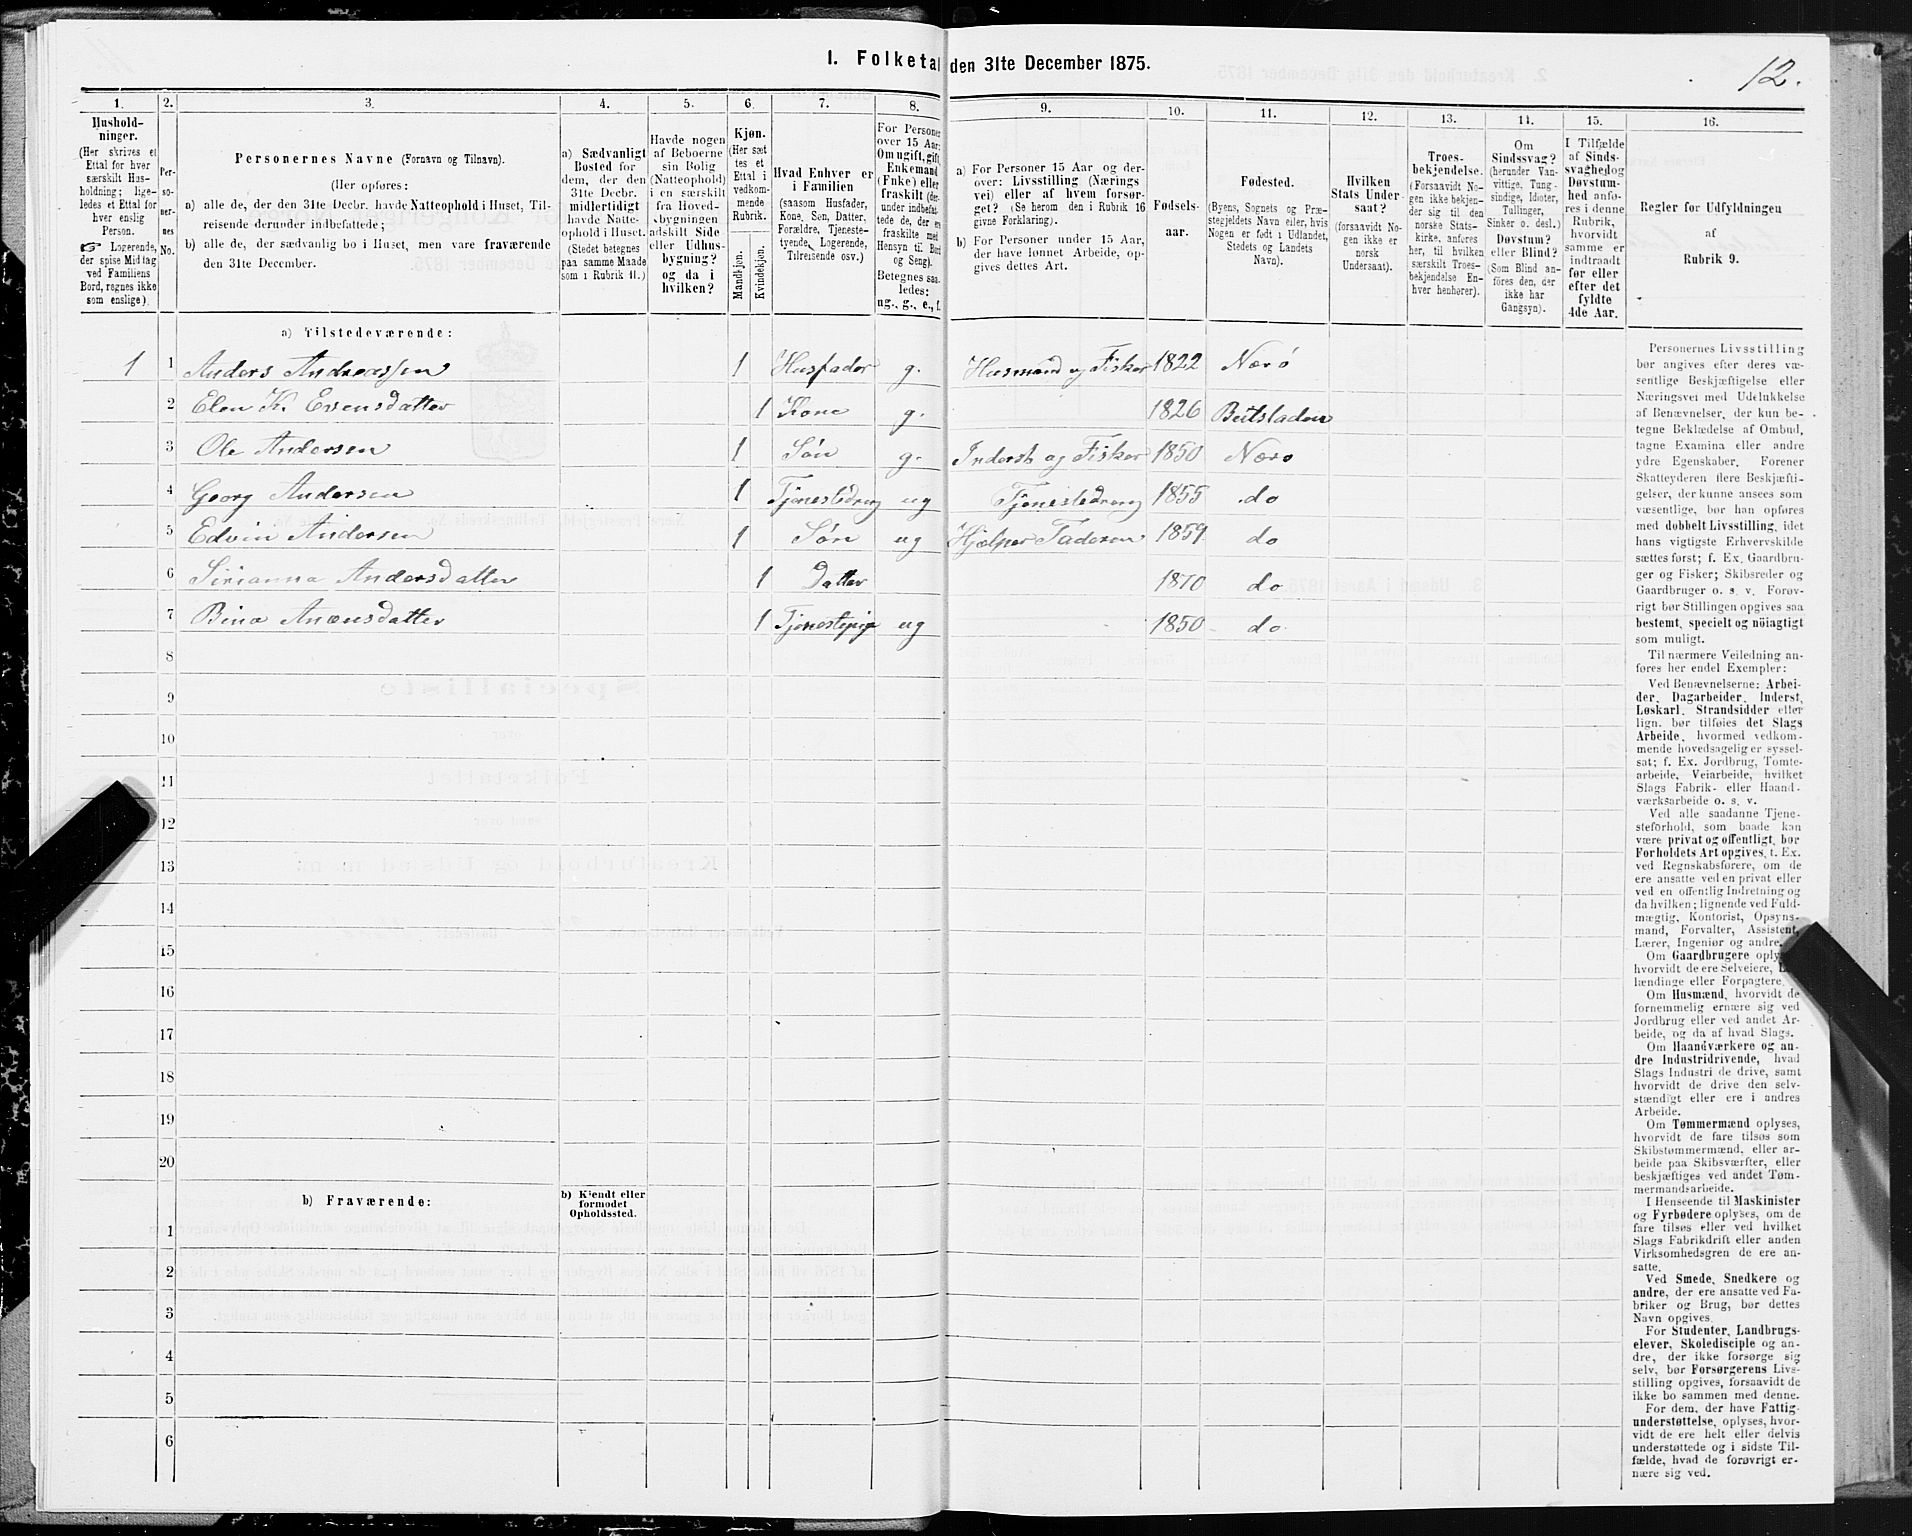 I. Folketal den 31te December 1875.
12.
1.
2.
3.
4.
5.
6.
7.
8.
9.
10.
11.
12.
13.
14.
15.
16.
Hushold-
ninger.
(Her skrives et
Ettal for hver
særskilt Hus-
holdning; lige-
ledes et Ettal for
hver enslig
Person.
☞ Logerende,
der spise Middag
ved Familiens
Bord, regnes ikke
som enslige)
Per-
so-
ner-
nes
No.
Personernes Navne (Fornavn og Tilnavn).
(Her opføres:
a) alle de, der den 31te Decbr. havde Natteophold i Huset, Til-
reisende derunder indbefattede;
b) alle de, der sædvanlig bo i Huset, men vare fraværende
den 31te December.
a) Sædvanligt
Bosted for
dem, der den
31te Decbr.
midlertidigt
havde Natte-
ophold i Huset.
(Stedet betegnes
paa samme Maade
som i Rubrik 11.)
Havde nogen
af Beboerne
sin Bolig
(Natteophold)
i en særskilt
fra Hoved-
bygningen
adskilt Side
eller Udhus-
bygning?
og da i
hvilken?
Kjøn.
(Her sæt
tes et
Ettal i
vedkom-
mende
Rubrik.
Mandkjøn.
Kvindekjøn.
Hvad Enhver er
i Familien
(saasom Husfader,
Kone, Søn, Datter,
Forældre, Tjeneste-
tyende, Logerende,
Tilreisende osv.)
For Personer
over 15 Aar:
Om ugift, gift,
Enkemand
(Enke) eller
fraskilt (der-
under indbefat-
tede de, der ere
fraskilte med
Hensyn til Bord
og Seng).
Betegnes saa-
ledes:
ug., g., e., f.
a) For Personer 15 Aar og der-
over: Livsstilling (Nærings
vei) eller af hvem forsør-
get? (Se herom den i Rubrik 16
givne Forklaring).
b) For Personer under 15 Aar,
der have lønnet Arbeide, op-
gives dettes Art.
Fødsels-
aar.
Fødested.
(Byens, Sognets og Præ-
stegjeldets Navn eller, hvis
Nogen er født i Udlandet,
Stedets og Landets
Navn).
Hvilken
Stats Under-
saat?
(forsaavidt No-
gen ikke er
norsk
Undersaat).
Troes-
bekjendelse.
(Forsaavidt No-
gen ikke bekjen-
der sig til den
norske Stats-
kirke, anføres
her, til hvilken
særskilt Troes-
bekjendelse En-
hver henhører).
Om
Sindssvag?
(herunder Van-
vittige, Tung-
sindige, Idioter,
Tullinger,
Sinker o. desl.)
Døvstum?
eller Blind?
(Som Blind an-
føres den, der
ikke har
Gangsyn).
I Tilfælde
af Sinds-
svaghed og
Døvstum-
hed anfø-
res i denne
Rubrik,
hvorvidt
samme er
indtraadt
før eller
efter det
fyldte
4de Aar.
Regler for Udfyldningen
af
Rubrik 9.
a) Tilstedeværende:
1 1 Anders Andreassen 1 Husfader g. Husmand og Fisker 1822 Nærø
2 Elen K. Evensdatter 1 Kone g. 1826
3 Ole Andersen 1 Søn g. Inderst og Fisker 1850 Nærø
4 Georg Andersen 1 Tjenestedreng ug Tjenestedreng 1855 do
5 Edvin Andersen 1 Søn ug Hjelper Faderen 1859 do
6 Sirianna Andersdatter 1 Datter 1870 do
7 Bina 1 Tjenestepige ug 1850 do
8
9
10
11
12
13
14
15
16
17
18
19
20
b) Fraværende:
b) Kjendt eller
formodet
Opholdssted.
1
2
3
4
5
6
Personernes Livsstilling
bør angives efter deres væ-
sentlige Beskjæftigelse eller
Næringsvei med Udelukkelse
af Benævnelser, der kun be-
tegne Beklædelse af Ombud,
tagne Examina eller andre
ydre Egenskaber. Forener
Skatteyderen flere Beskjæfti-
gelser, der kunne ansees som
væsentlige, bør han opføres
med dobbelt Livsstilling, idet
hans vigtigste Erhvervskilde
sættes først; f. Ex. Gaardbru-
ger og Fisker; Skibsreder og
Gaardbruger o. s. v. Forøv-
rigt bør Stillingen opgives saa
bestemt, specielt og nöiagtigt
som muligt.
Til nærmere Veiledning an-
føres her endel Exempler:
Ved Benævnelserne: Arbei-
der, Dagarbeider, Inderst,
Løskarl, Strandsidder eller
lign. bør tilføies det Slags
Arbeide, hvormed vedkom-
mende hovedsagelig er syssel-
sat; f. Ex. Jordbrug, Tomte-
arbeide, Veiarbeide, hvilket
Slags Fabrik- eller Haand-
værksarbeide o. s. v.
Ved alle saadanne Tjene-
steforhold, som baade kan
være privat og offentligt, bør
Forholdets Art opgives, f. Ex.
ved Regnskabsførere, om de
ere ansatte ved en privat eller
ved en offentlig Indretning og
da hvilken; lignende ved Fuld-
mægtig, Kontorist, Opsyns-
mand, Forvalter, Assistent,
Lærer, Ingeniør og andre.
Om Gaardbrugere
hvorvidt de ere Selveiere,
lændinge eller Forpagtere.
Om Husmænd, hvorvidt de
fornemmelig ernære sig ved
Jordbrug eller ved andet Ar-
beide, og da af hvad Slags.
Om Haandværkere og an-
dre Industridrivende, hvad
Slags Industri de drive, samt
hvorvidt de drive den selv-
stændigt eller ere i andres
Arbeide.
Om Tømmermænd oplyses,
hvorvidt de fare tilsøs som
Skibstømmermænd, eller ar-
beide paa Skibsværfter, eller
beskjæftiges ved andet Tøm-
mermandsarbeide.
I Henseende til Maskinister
og Fyrbødere oplyses, om de
fare tilsøs eller ved hvilket
Slags Fabrikdrift eller anden
Virksomhedsgren de ere an-
satte.
Ved Smede, Snedkere og
andre, der ere ansatte ved Fa-
briker og Brug, bør dettes
Navn opgives.
For Studenter, Landbrugs-
elever, Skoledisciple og an-
dre, der ikke forsørge sig
selv, bør Forsørgerens Livs-
stilling opgives, forsaavidt de
ikke bo sammen med denne.
For dem, der have Fattig-
understøttelse, oplyses, hvor-
vidt de ere helt eller delvis
understøttede og i sidste Til-
fælde, hvad de forøvrigt er-
nære sig ved.